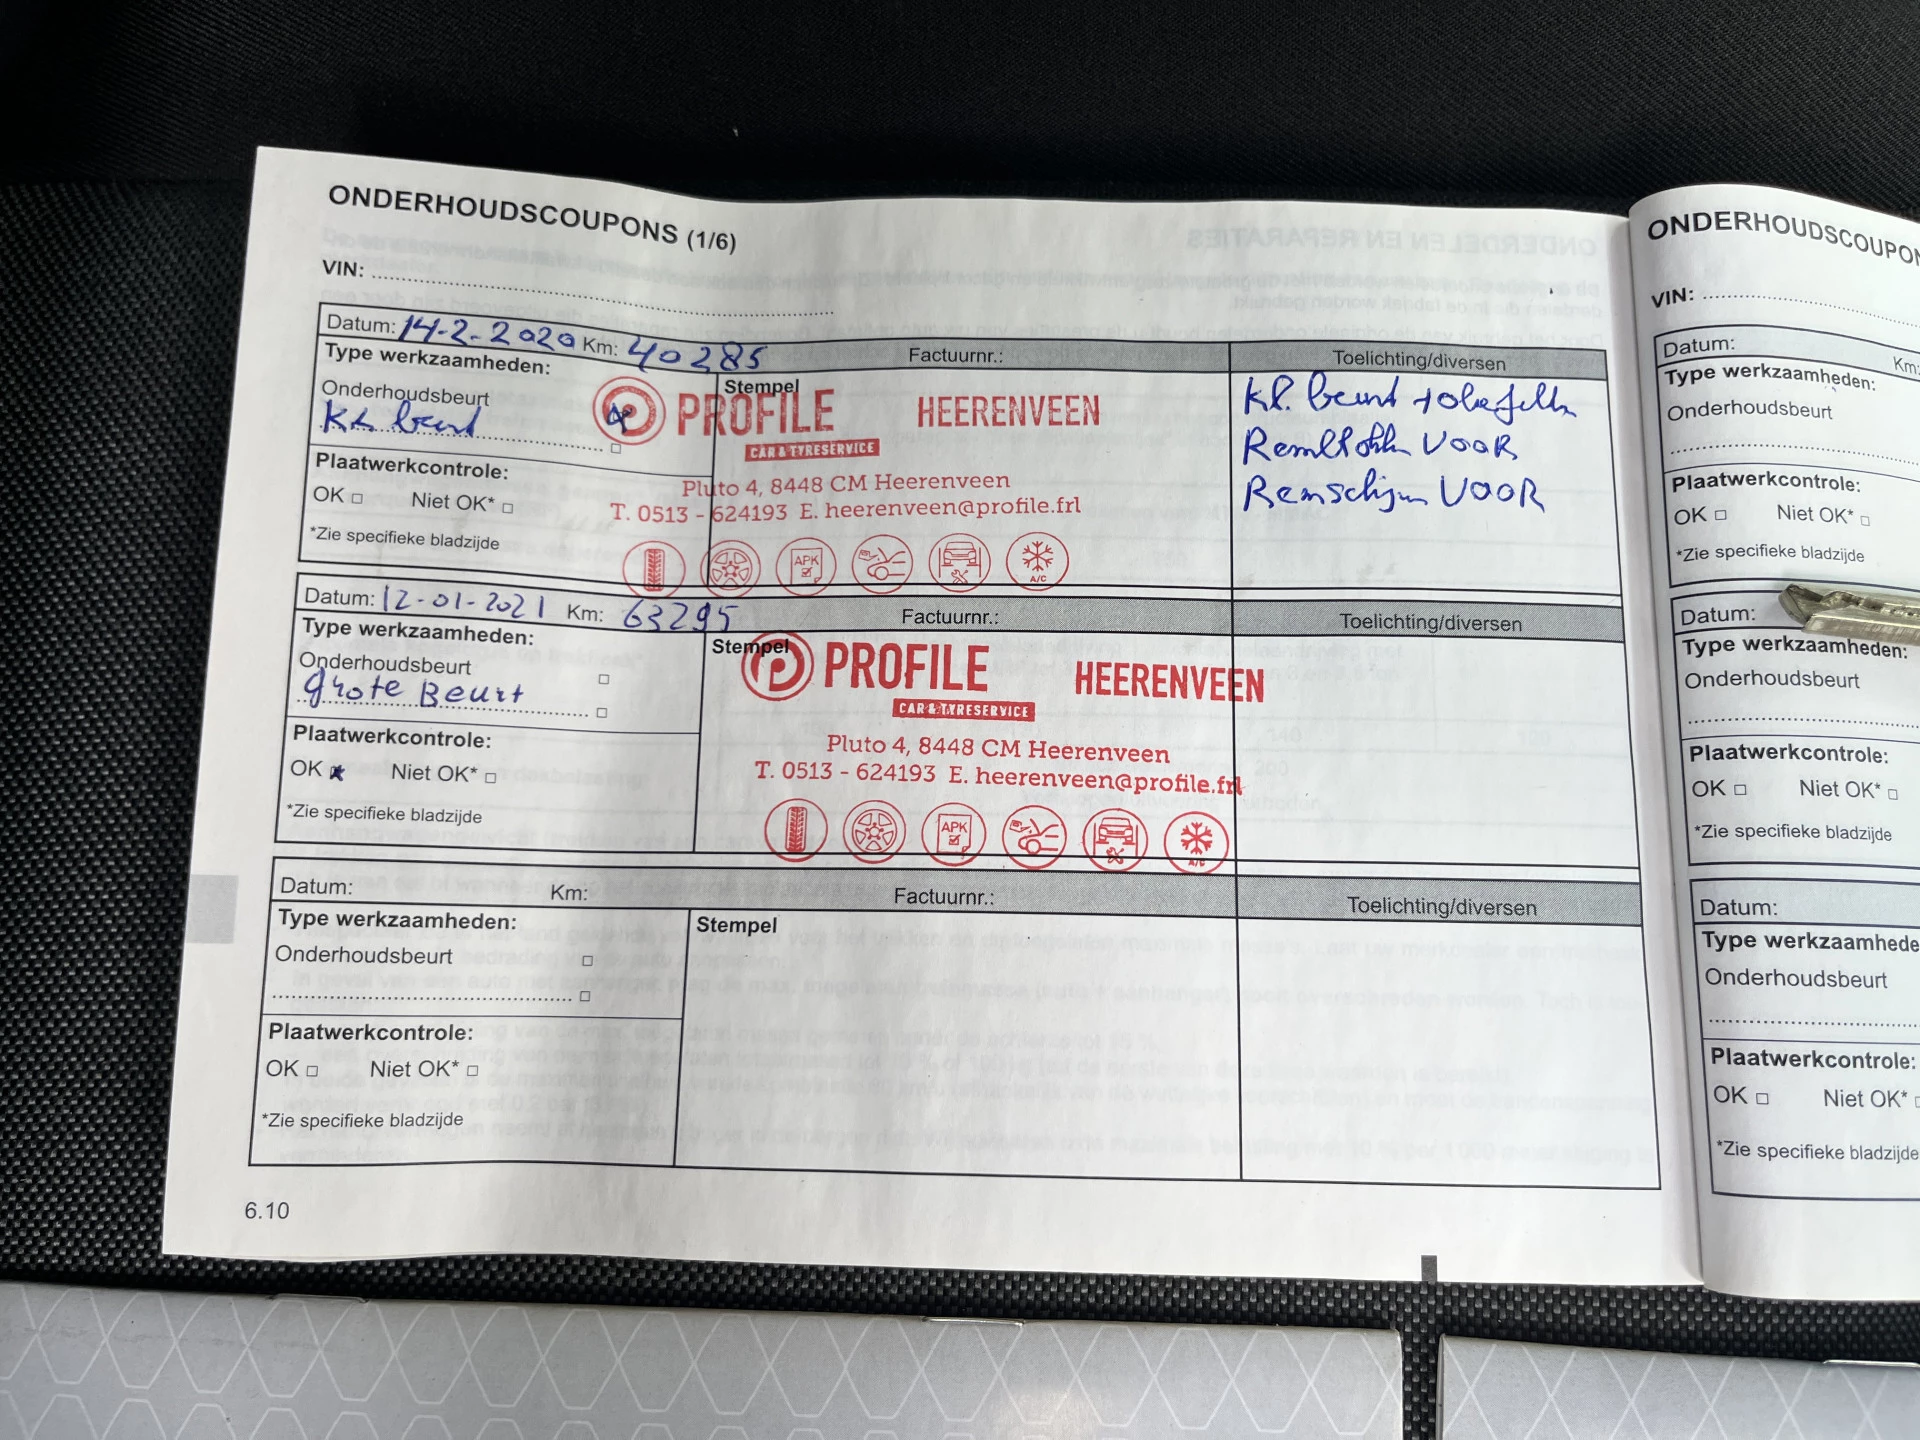 ONDERHOUDSCOUPONS (1/6)
VIN:
Datum: 14-2-2020 Km: 40285 Factuurnr.: Toelichting/diversen
Type werkzaamheden:
Onderhoudsbeurt
KL beurt
Stempel
PROFILE HEERENVEEN
CAR & TYRESERVICE
Pluto 4, 8448 CM Heerenveen
T. 0513 - 624193 E. heerenveen@profile.frl
APK
A/C
Kl. beurt
VOOR
Remschijven VOOR
Plaatwerkcontrole:
OK Niet OK*
*Zie specifieke bladzijde
Datum: 12-01-2021 Km: 63295 Factuurnr.: Toelichting/diversen
Type werkzaamheden:
Onderhoudsbeurt
grote Beurt
Stempel
PROFILE HEERENVEEN
CAR & TYRESERVICE
Pluto 4, 8448 CM Heerenveen
T. 0513 - 624193 E. heerenveen@profile.frl
APK
A/C
Plaatwerkcontrole:
OK Niet OK*
*Zie specifieke bladzijde
Datum: Km: Factuurnr.: Toelichting/diversen
Type werkzaamheden:
Onderhoudsbeurt
Stempel
Plaatwerkcontrole:
OK Niet OK*
*Zie specifieke bladzijde
6.10
ONDERHOUDSCOUPON
VIN:
Datum: Km:
Type werkzaamheden:
Onderhoudsbeurt
Plaatwerkcontrole:
OK Niet OK*
*Zie specifieke bladzijde
Datum:
Type werkzaamheden:
Onderhoudsbeurt
Plaatwerkcontrole:
OK Niet OK*
*Zie specifieke bladzijde
Datum:
Type werkzaamhede
Onderhoudsbeurt
Plaatwerkcontrole:
OK Niet OK*
*Zie specifieke bladzijde